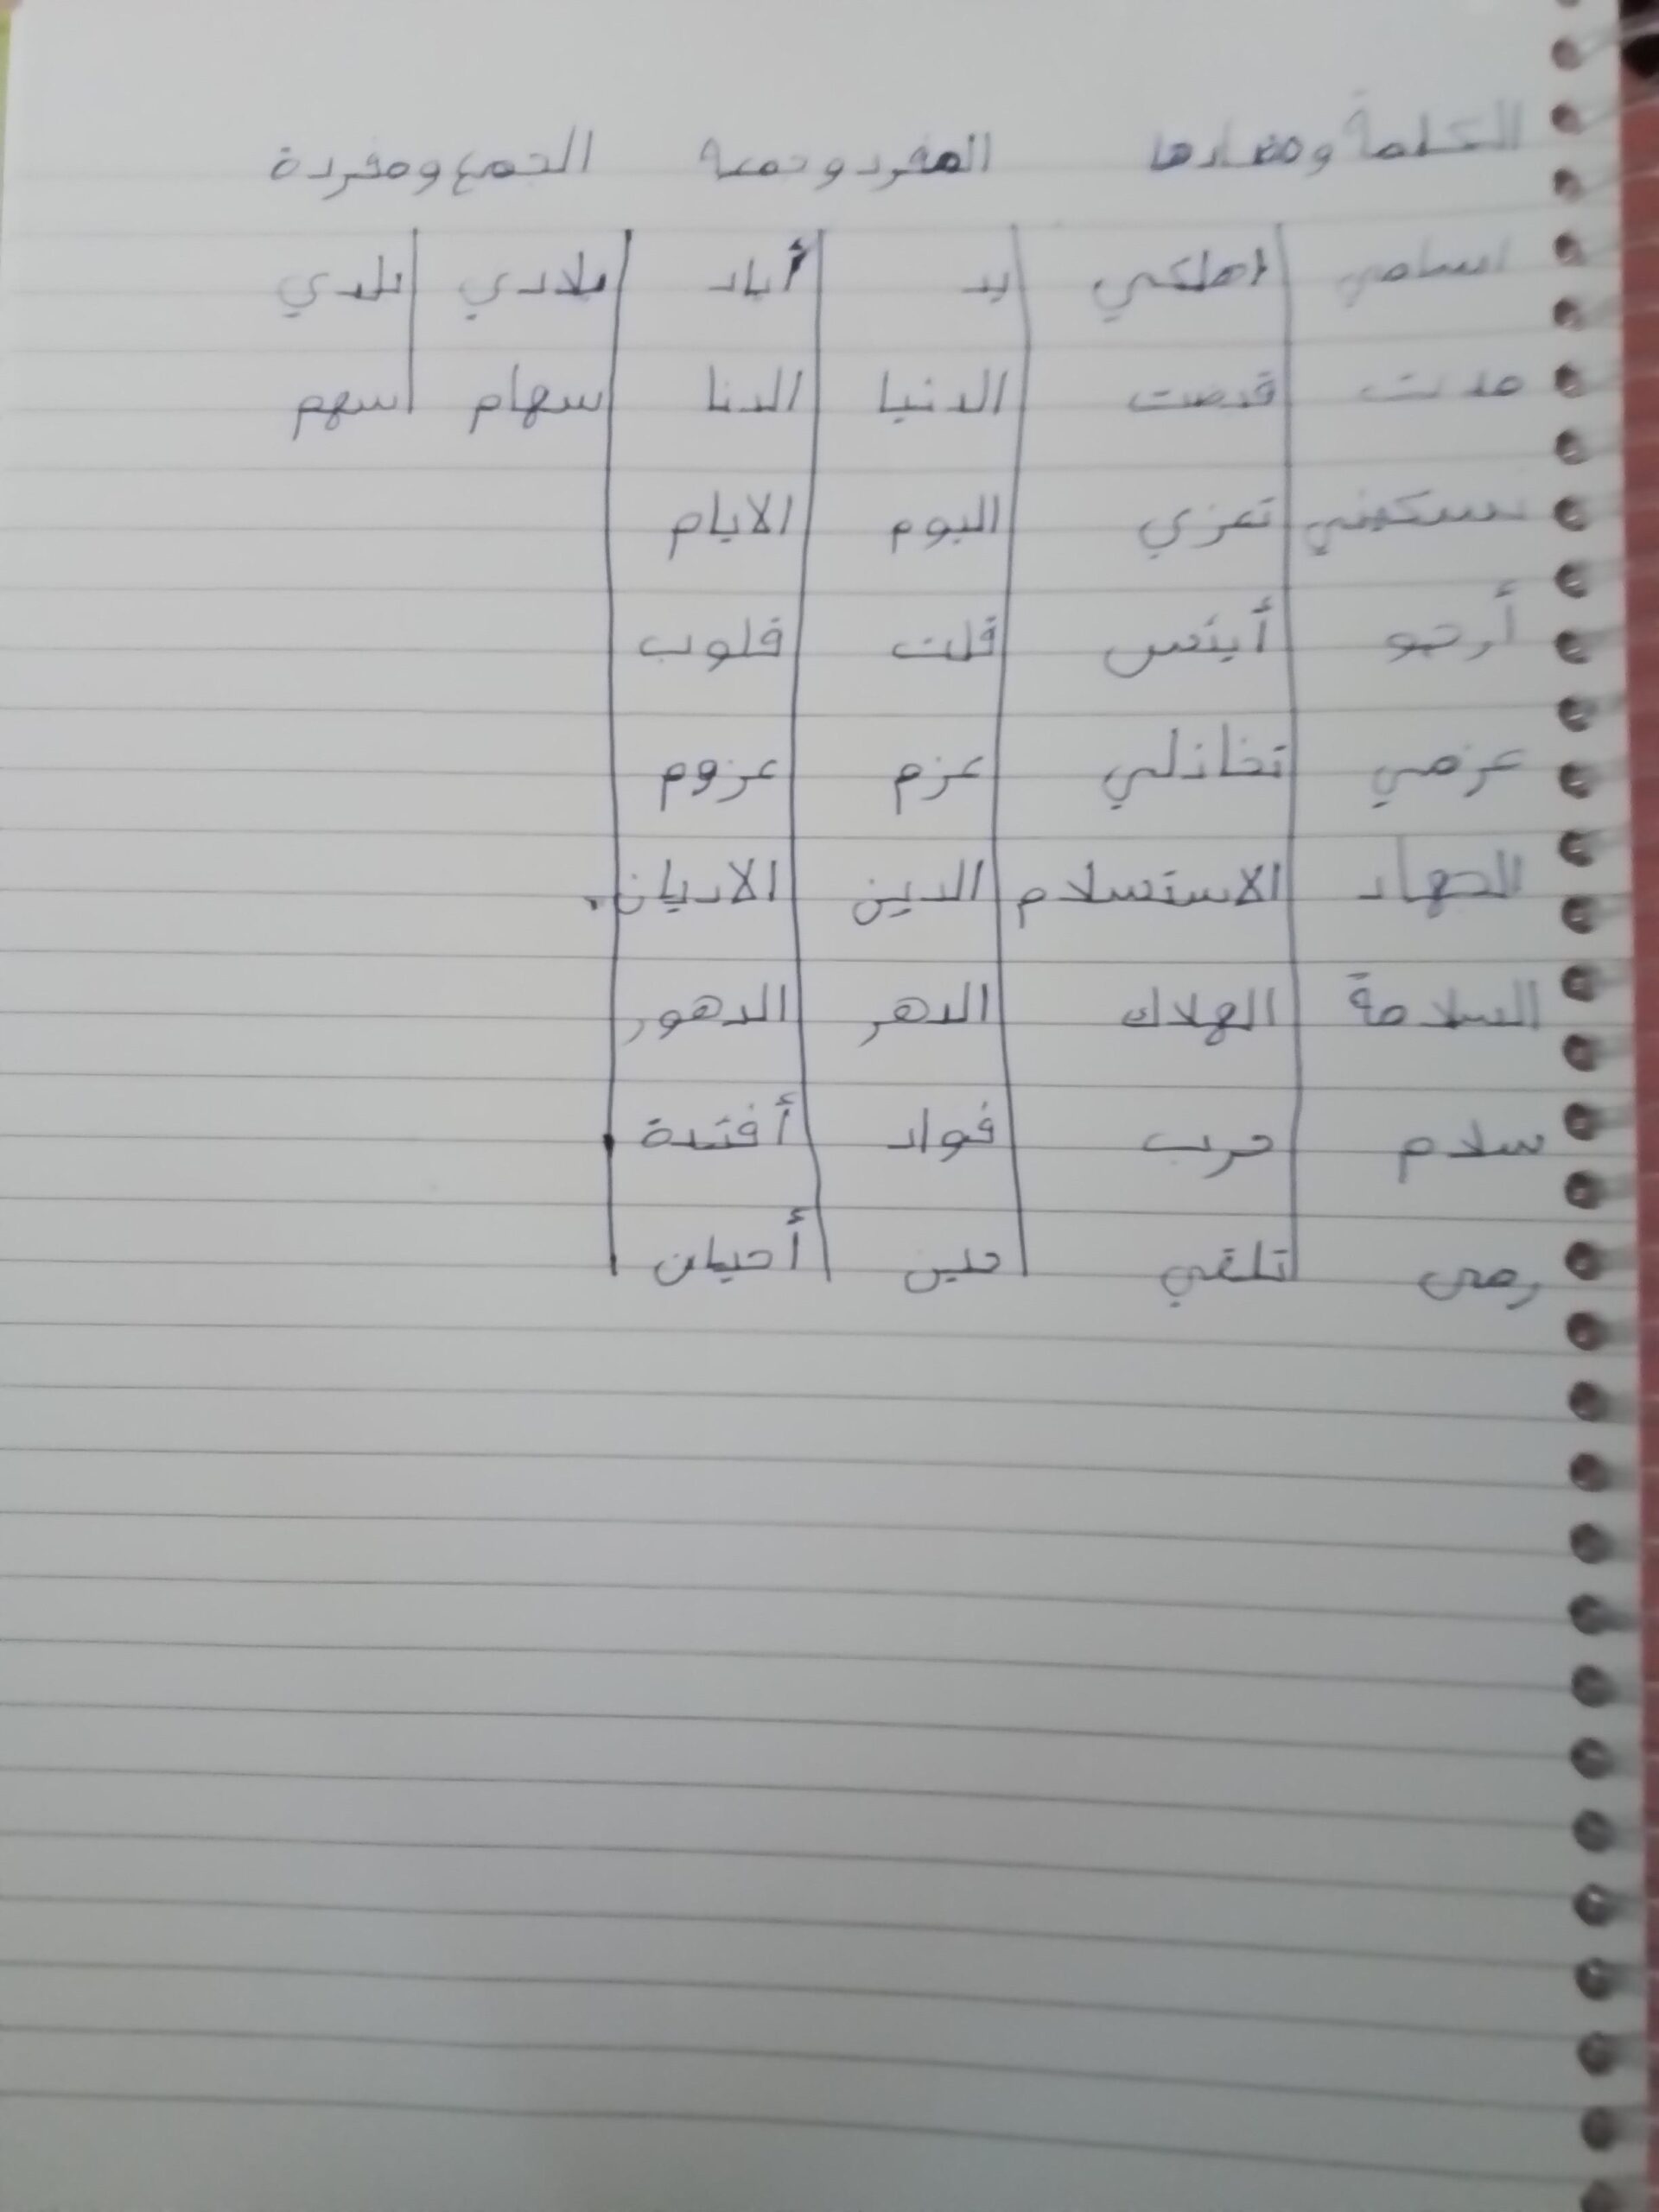 الكلمة ومضادها المفرد وجمعه الجمع ومفردة
اسلمي اهلكي يد أياد بلادي بلدي
مدت قبضت الدنيا الدنا سهام اسهم
تستكيني تعزي اليوم الايام
أرجو أيئس قلب قلوب
عزمي تخاذلي عزم عزوم
الجهاد الاستسلام الدين الاديان
السلامة الهلاك الدهر الدهور
سلام حرب فواد أفئدة
رمى تلقي حين أحيان